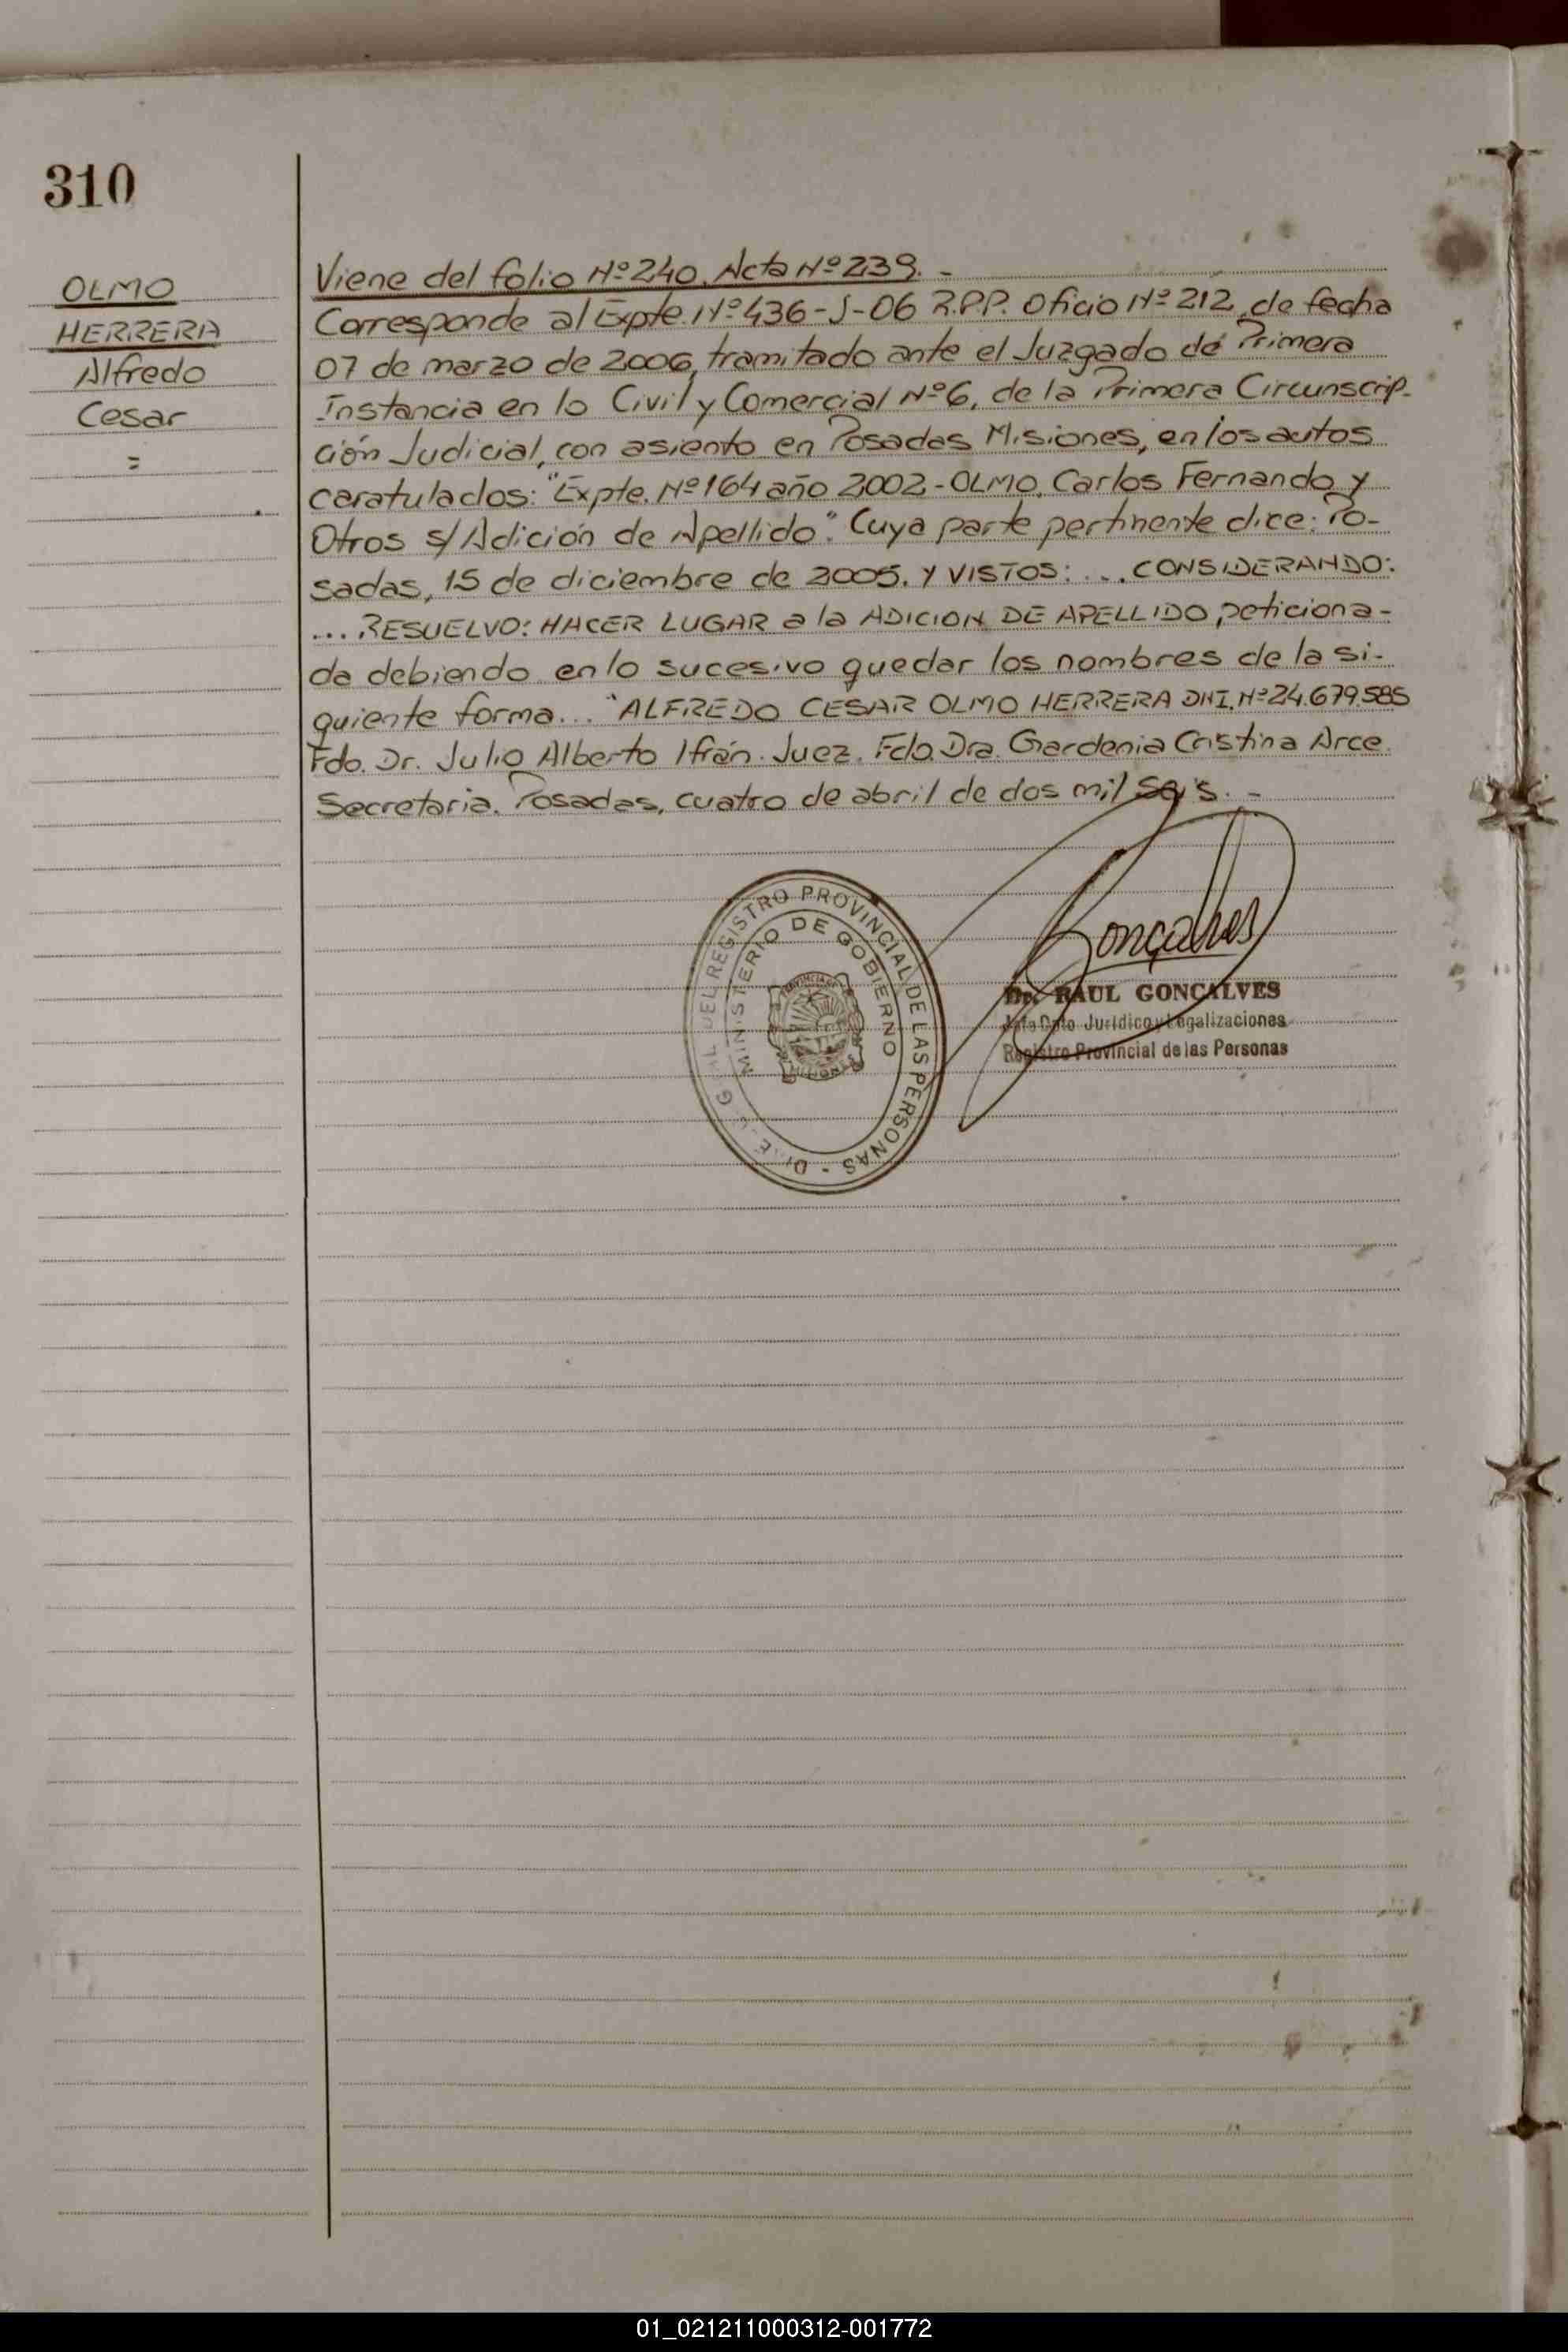 310
OLMO
HERRERA
Alfredo
Cesar
=
Viene del folio Nº 240. Acta Nº 239. -
Corresponde al Expte. Nº 436-J-06 R.P.P. Oficio Nº 212, de fecha
07 de marzo de 2006, tramitado ante el Juzgado de Primera
Instancia en lo Civil y Comercial Nº 6, de la Primera Circunscrip-
ción Judicial, con asiento en Posadas Misiones, en los autos
caratulados: "Expte. Nº 164 año 2002 - OLMO, Carlos Fernando y
Otros s/ Adición de Apellido". Cuya parte pertinente dice: Po-
sadas, 15 de diciembre de 2005. Y VISTOS: ... CONSIDERANDO:
... RESUELVO: HACER LUGAR a la ADICION DE APELLIDO peticiona-
da debiendo en lo sucesivo quedar los nombres de la si-
guiente forma... "ALFREDO CESAR OLMO HERRERA DNI. Nº 24.679.585
Fdo. Dr. Julio Alberto Ifrán. Juez. Fdo. Dra. Gardenia Cristina Arce.
Secretaria. Posadas, cuatro de abril de dos mil seis. -
DEL REGISTRO PROVINCIAL DE LAS PERSONAS -
MINISTERIO DE GOBIERNO
PROVINCIA DE
MISIONES
Gonçalves
Dr. RAUL GONCALVES
Jefe Dpto Jurídico y Legalizaciones
Registro Provincial de las Personas
01_021211000312-001772